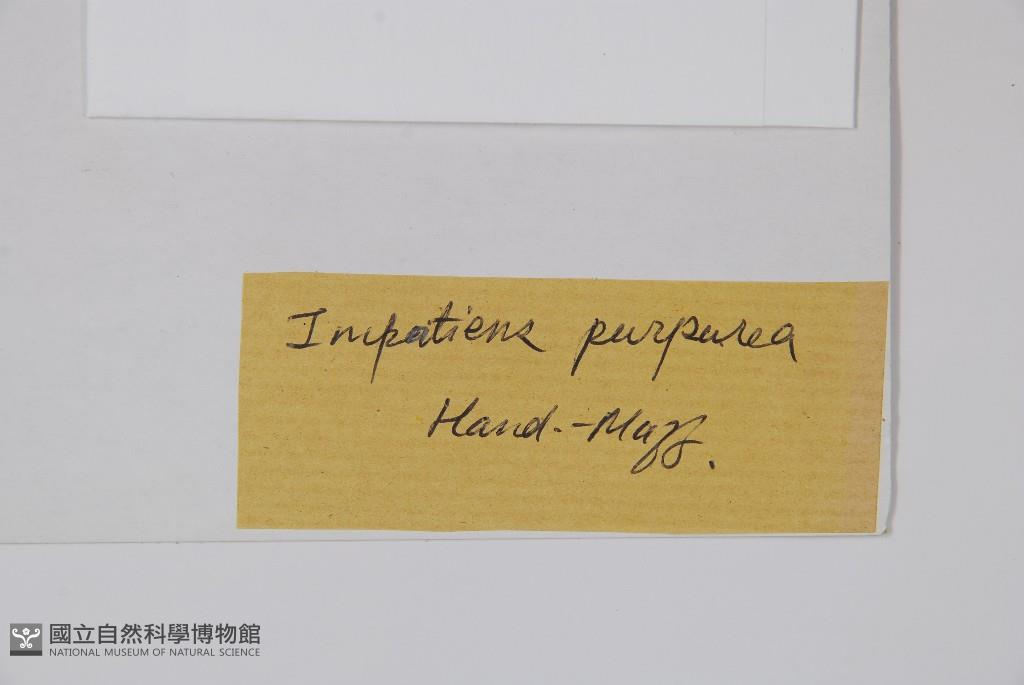 Impatiens purpurea
Hand.-Mazz.
國立自然科學博物館
NATIONAL MUSEUM OF NATURAL SCIENCE